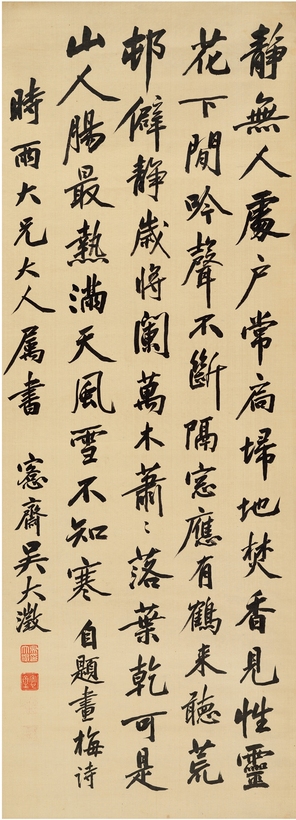 靜無人處戶常扃埽地焚香見性靈
花下閒吟聲不斷隔窓應有鶴来聽荒
邨僻靜歲將闌萬木蕭〻落葉乾可是
山人腸最熱滿天風雪不知寒 自題畫梅詩
時雨大兄大人属書 愙齋吳大澂